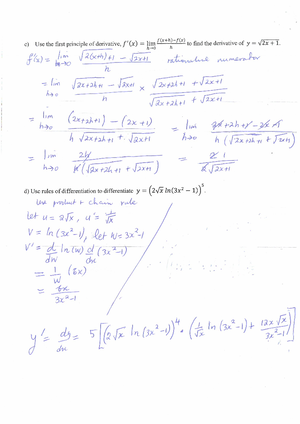 c) Use the first principle of derivative, f'(x) = lim h→0 (f(x+h)−f(x))/h to find the derivative of y = √(2x + 1).
f'(x) = lim h→0 (√(2(x+h)+1) − √(2x+1))/h rationalize numerator
= lim h→0 (√(2x+2h+1) − √(2x+1))/h × (√(2x+2h+1) + √(2x+1))/(√(2x+2h+1) + √(2x+1))
= lim h→0 ((2x+2h+1) − (2x+1))/(h √(2x+2h+1) + √(2x+1)) = lim h→0 (2x+2h+1−2x−1)/(h(√(2x+2h+1) + √(2x+1)))
= lim h→0 2h/(h(√(2x+2h+1) + √(2x+1))) = 2 1/(2√(2x+1))
d) Use rules of differentiation to differentiate y = (2√x ln(3x² − 1))⁵.
Use product + chain rule
let u = 2√x, u' = 1/√x
V = ln(3x²−1), let w = 3x²−1
V' = d/dw ln(w) d/dx (3x²−1)
= 1/w (6x)
= 6x/(3x²−1)
y' = dy/dx = 5[(2√x ln(3x²−1))⁴ • (1/√x ln(3x²−1) + 12x√x/(3x²−1))]